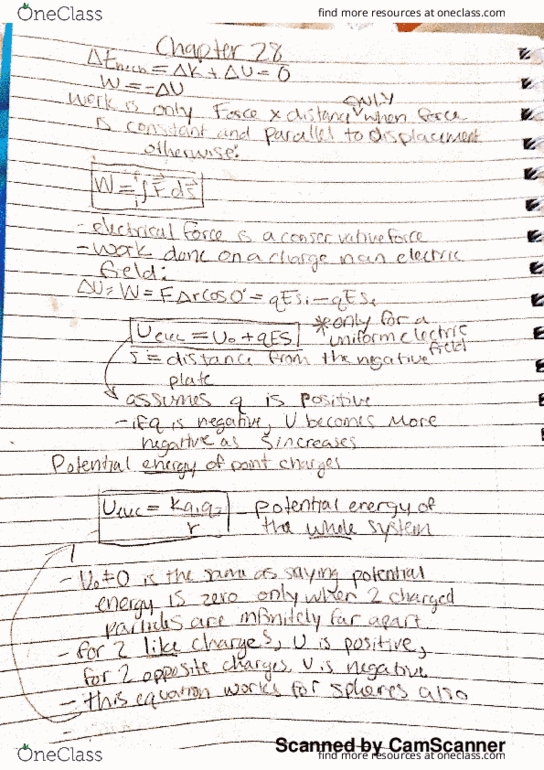 OneClass
find more resources at oneclass.com
Chapter 28
ΔEmech = ΔK + ΔU = 0
W = -ΔU
only
Work is only Force x distance when force
is constant and parallel to displacement
otherwise:
W = ∫ F ds
- electrical force is a conservative force
- work done on a charge in an electric
field:
ΔU = W = FΔr cos 0° = qEsi - qEsi
Uelec = U0 + qES
*only for a
uniform electric
field
S = distance from the negative
plate
assumes q is positive
- if q is negative, U becomes more
negative as S increases
Potential energy of point charges
Uelec = kq1q2
r
- potential energy of
the whole system
- U0 = 0 is the same as saying potential
energy is zero only when 2 charged
particles are infinitely far apart
- for 2 like charges, U is positive,
for 2 opposite charges, U is negative
- this equation works for spheres also
-
Scanned by CamScanner
OneClass
find more resources at oneclass.com